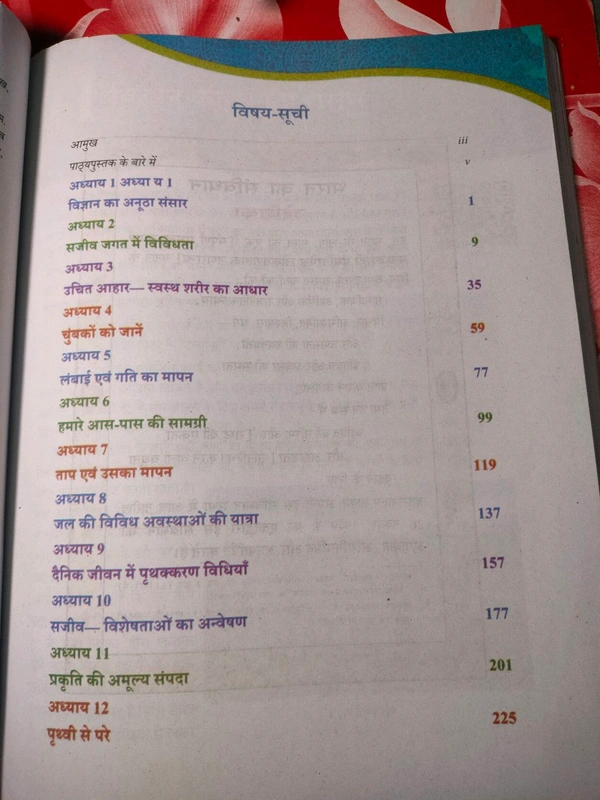 विषय-सूची
आमुख iii
पाठ्यपुस्तक के बारे में v
अध्याय 1 अध्या य 1
विज्ञान का अनूठा संसार 1
अध्याय 2
सजीव जगत में विविधता 9
अध्याय 3
उचित आहार— स्वस्थ शरीर का आधार 35
अध्याय 4
चुंबकों को जानें 59
अध्याय 5
लंबाई एवं गति का मापन 77
अध्याय 6
हमारे आस-पास की सामग्री 99
अध्याय 7
ताप एवं उसका मापन 119
अध्याय 8
जल की विविध अवस्थाओं की यात्रा 137
अध्याय 9
दैनिक जीवन में पृथक्करण विधियाँ 157
अध्याय 10
सजीव— विशेषताओं का अन्वेषण 177
अध्याय 11
प्रकृति की अमूल्य संपदा 201
अध्याय 12
पृथ्वी से परे 225